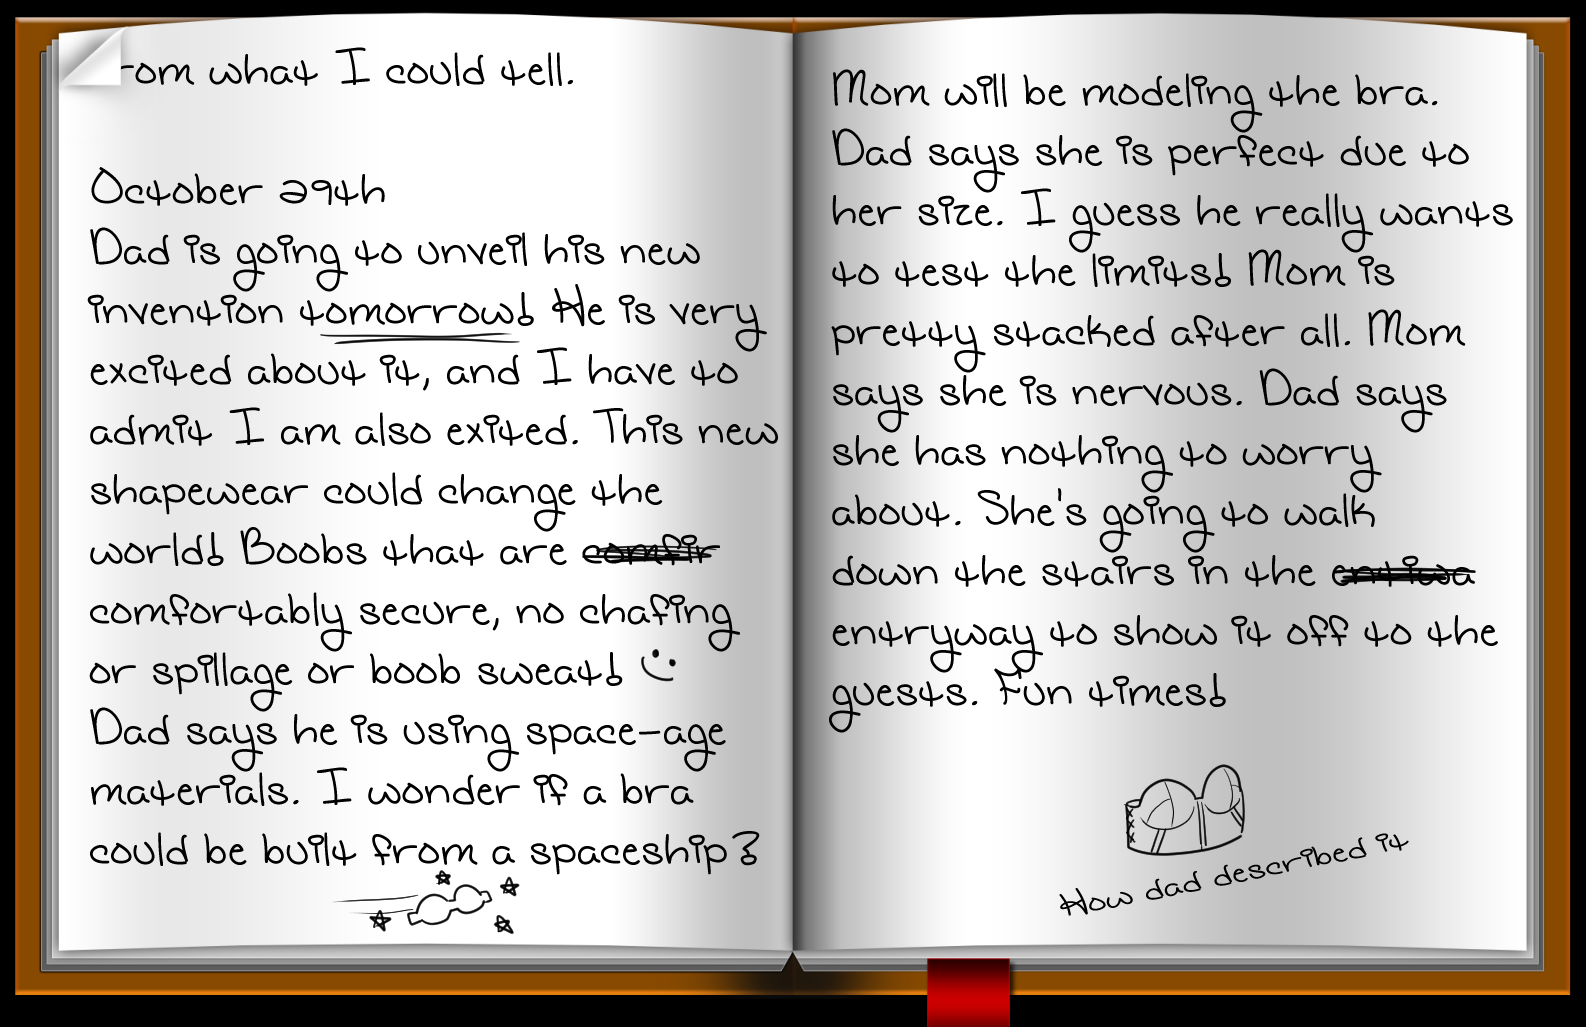 rom what I could tell.
October 29th
Dad is going to unveil his new
invention tomorrow! He is very
excited about it, and I have to
admit I am also exited. This new
shapewear could change the
world! Boobs that are comfir
comfortably secure, no chafing
or spillage or boob sweat!
Dad says he is using space-age
materials. I wonder if a bra
could be built from a spaceship?
Mom will be modeling the bra.
Dad says she is perfect due to
her size. I guess he really wants
to test the limits! Mom is
pretty stacked after all. Mom
says she is nervous. Dad says
she has nothing to worry
about. She's going to walk
down the stairs in the entiwa
entryway to show it off to the
guests. Fun times!
How dad described it